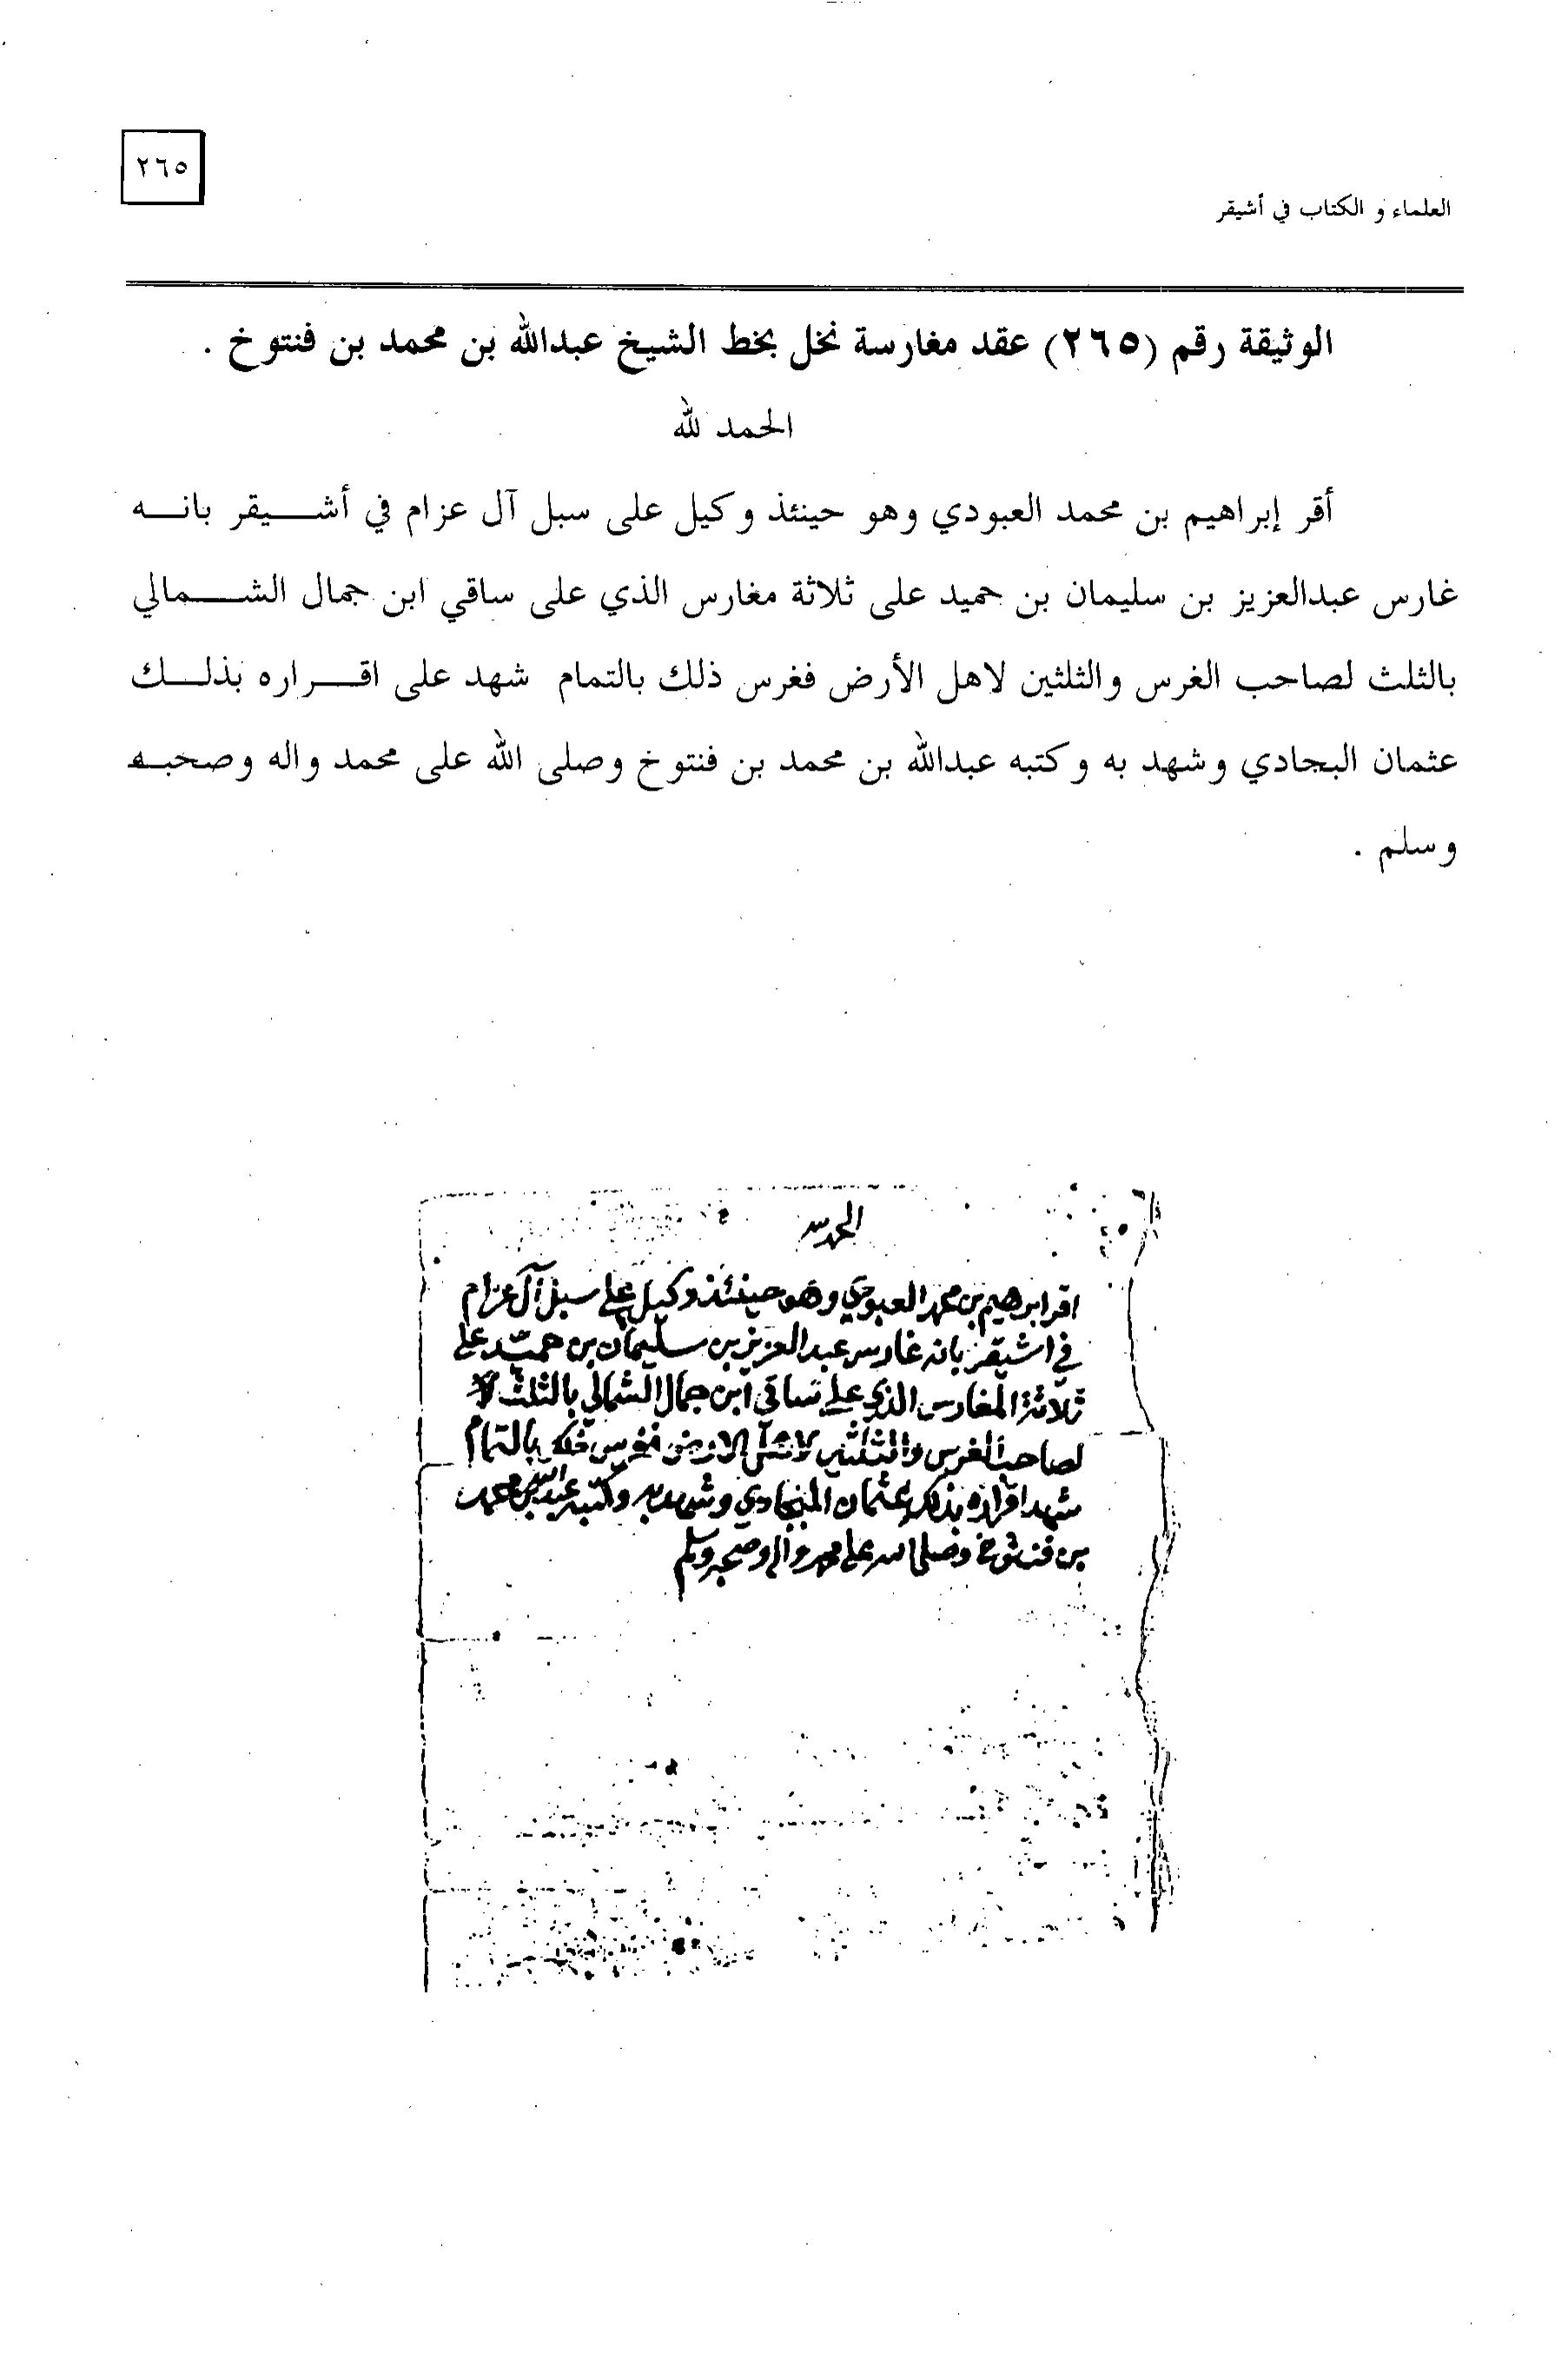 ٢٦٥
العلماء و الكتاب في أشيقر
الوثيقة رقم (٢٦٥) عقد مغارسة نخل بخط الشيخ عبدالله بن محمد بن فنتوخ .
الحمد لله
أقر إبراهيم بن محمد العبودي وهو حينئذ وكيل على سبل آل عزام في أشيقر بانه
غارس عبدالعزيز بن سليمان بن حميد على ثلاثة مغارس الذي على ساقي ابن جمال الشمالي
بالثلث لصاحب الغرس والثلثين لاهل الأرض فغرس ذلك بالتمام شهد على اقراره بذلك
عثمان البجادي وشهد به وكتبه عبدالله بن محمد بن فنتوخ وصلى الله على محمد واله وصحبه
وسلم .
الحمد لله
اقر ابرهيم بن محمد العبودي وهو حينئذ وكيل على سبل آل عزام
في اشيقر بانه غارس عبد العزيز بن سليمان بن حميد على
ثلاثة المغارس الذي على ساقي ابن جمال الشمالي بالثلث
لصاحب الغرس والثلثين لاهل الارض فغرس ذلك بالتمام
شهد اقراره بذلك عثمان البجادي وشهد به وكتبه عبد الله بن محمد
بن فنتوخ وصلى الله على محمد واله وصحبه وسلم